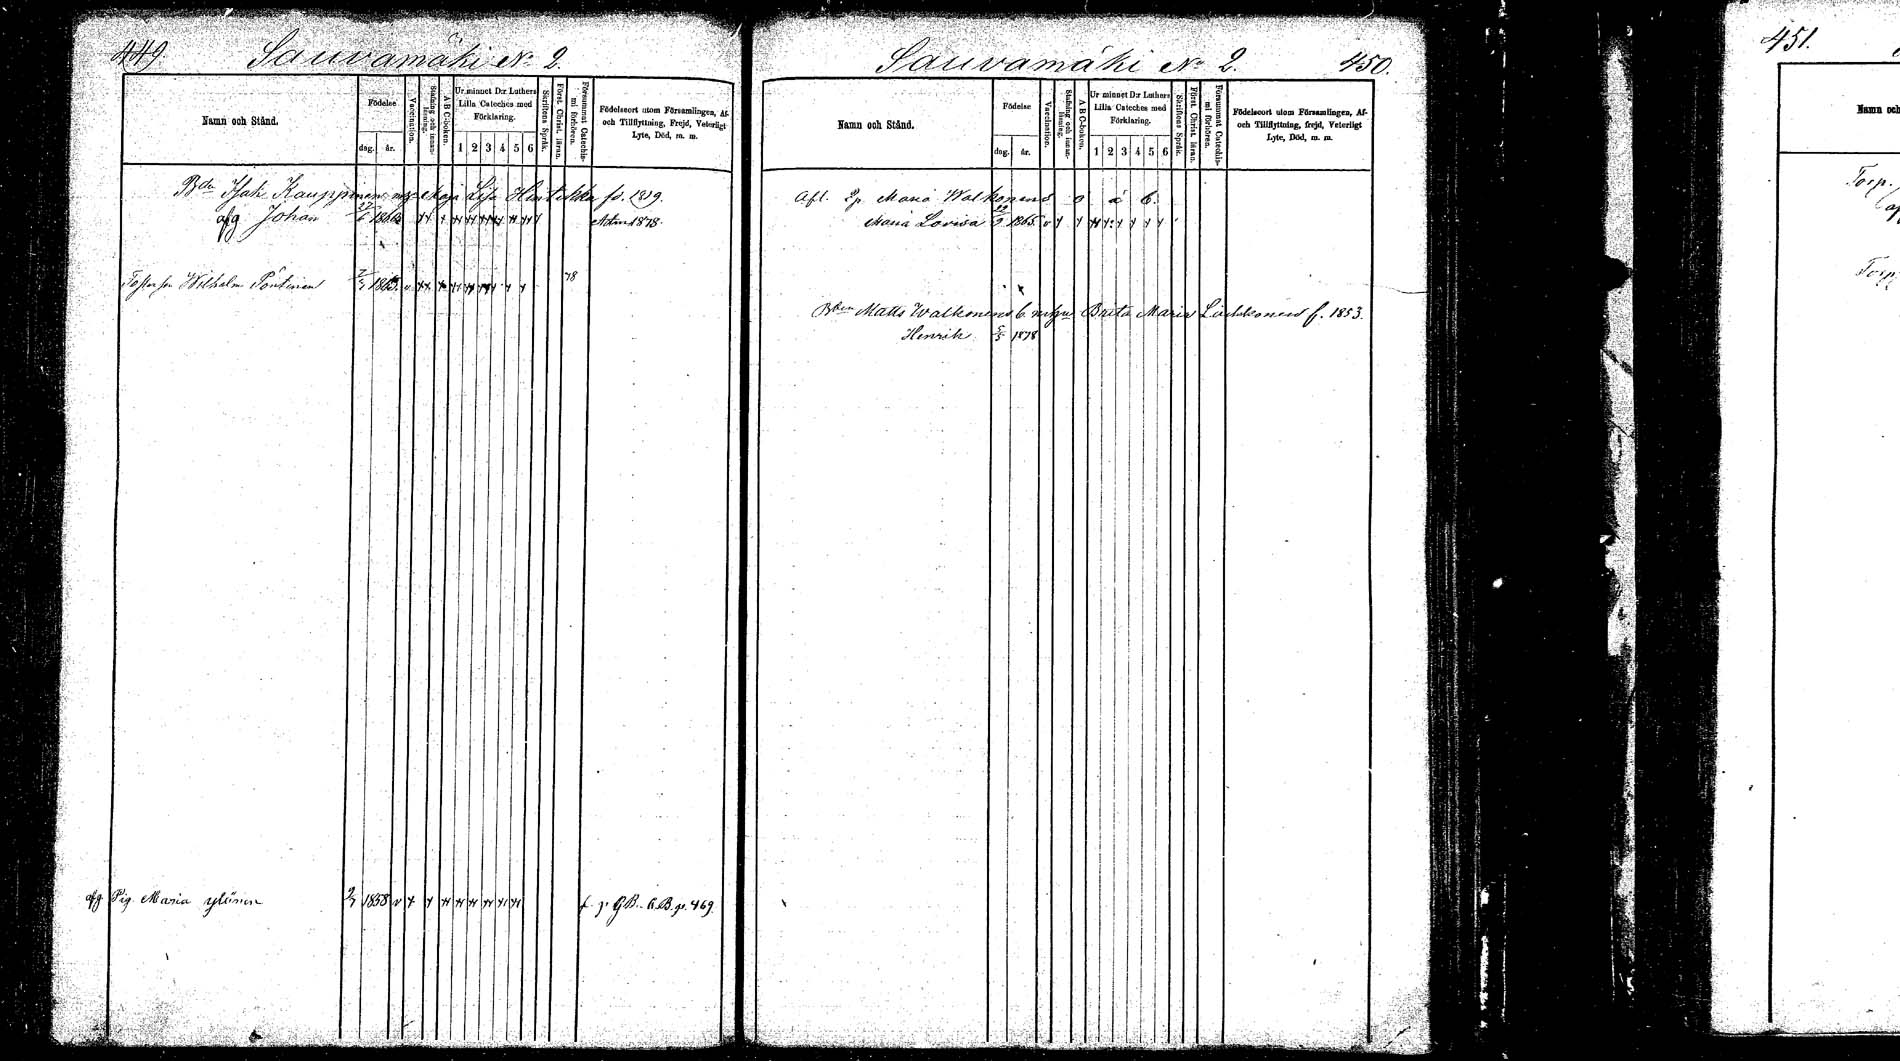 449.
Sauvamäki No 2.
Namn och Stånd.
Födelse
dag.
år.
Vaccination.
Stafning och innanläsning.
A B C-boken.
Ur minnet D:r Luthers Lilla Cateches med Förklaring.
1 2 3 4 5 6
Skriftens Språk.
Först. Christ. läran.
Försummat Catechismi förhören.
Födelseort utom Församlingen, Af- och Tillflyttning, Frejd, Veterligt Lyte, Död, m. m.
Kauppinen Lisa Hintikka fö. 1819.
afg Johan 27/6 1878.
Wilhelm Pöntinen 78
afg Pig. Maria Ylönen 2/7 1858 G.B. p. 469.
Sauvamäki No 2.
450.
Namn och Stånd.
Födelse
dag.
år.
Vaccination.
Stafning och innanläsning.
A B C-boken.
Ur minnet D:r Luthers Lilla Cateches med Förklaring.
1 2 3 4 5 6
Skriftens Språk.
Först. Christ. läran.
Försummat Catechismi förhören.
Födelseort utom Församlingen, Af- och Tillflyttning, frejd, Veterligt Lyte, Död, m. m.
Afl. Maria Walkonens o ä b.
Maria Lovisa 1865.
Matts Walkonens b m hu Brita Maria f. 1853.
Henrik 5/3 1878
451.
Namn och
Torp.
Torp.